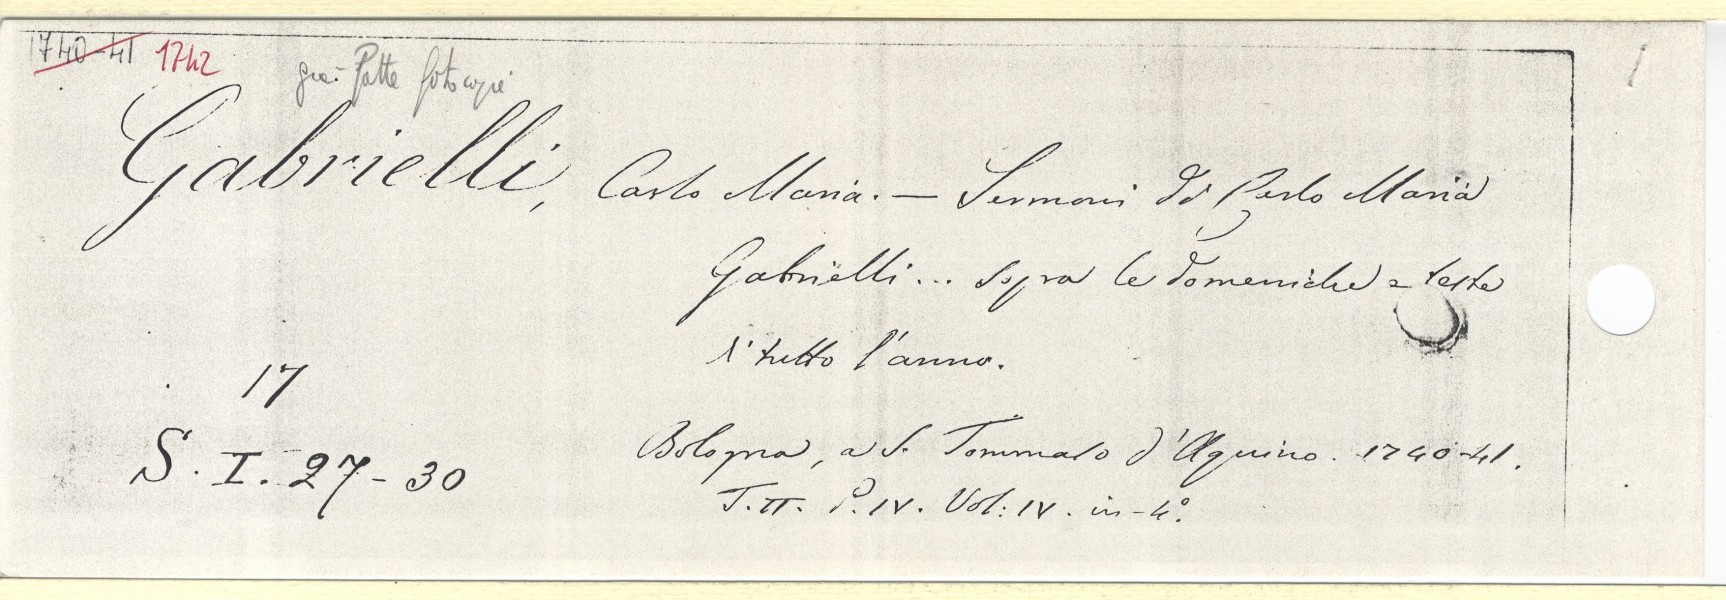 1740-41 1742
già Fatte fotocopie
Gabrielli, Carlo Maria. — Sermoni di Carlo Maria
Gabrielli... sopra le domeniche e feste
di tutto l'anno.
17
S. I. 27-30
Bologna, a S. Tommaso d'Aquino. 1740-41.
T. II. P. IV. Vol: IV. in-4°.